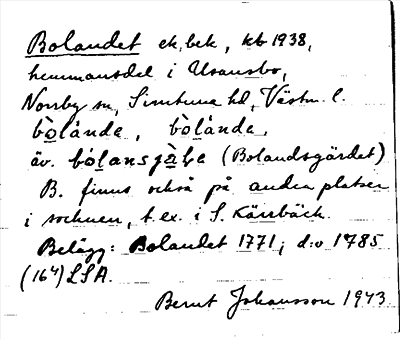 Bolandet ek. bek, kb 1938,
hemmansdel i Usansbo,
Norrby sn, Simtuna hd, Västm. l.
bò̱lánde, bò̱lánde,
äv. bó̱lansjà̱ḷe (Bolandsgärdet)
B. finns också på andra platser
i socknen, t. ex. i S. Kärrbäck.
Belägg: Bolandet 1771; d:o 1785
(16⁴) LSA.
Bernt Johansson 1943